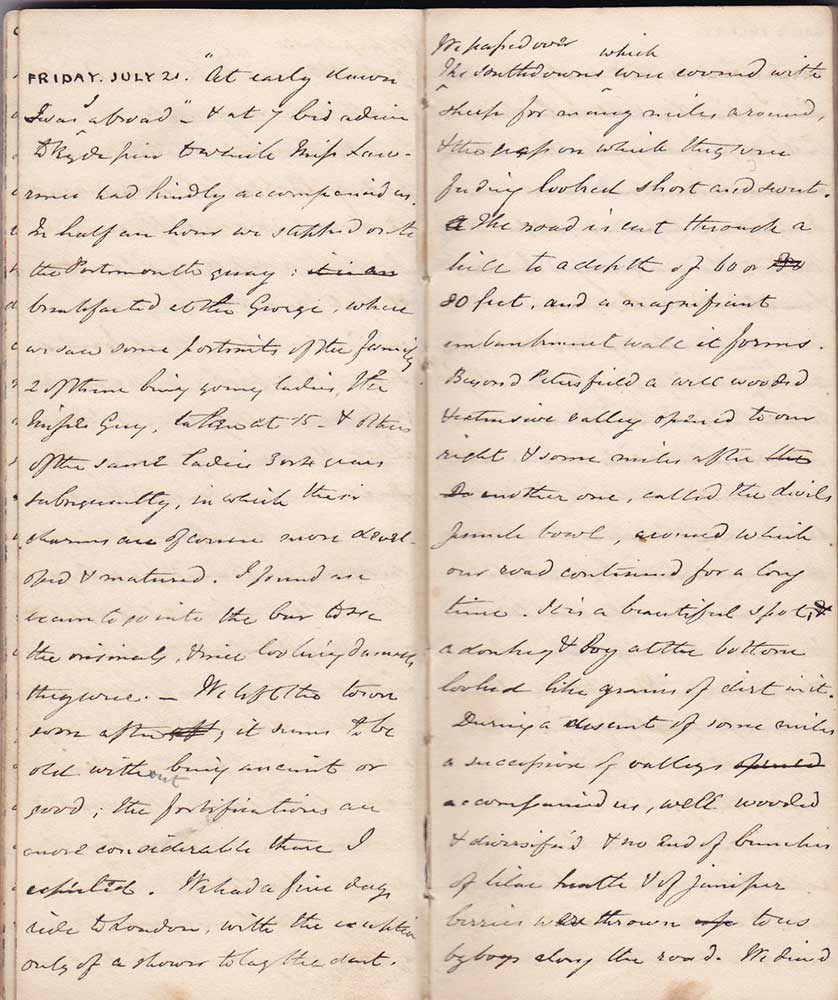 FRIDAY. JULY 21. "At early dawn
I was abroad" - & at 7 bid adieu
to Ryde pier to which Miss Law-
rence had kindly accompanied us.
In half an hour we stepped onto
the Portsmouth quay: it is an
breakfasted at the George, where
we saw some portraits of the family
2 of them being young ladies, the
Misses Guy, taken at 15 - & others
of the same ladies 3 or 4 years
subsequently, in which their
charms are of course more devel-
oped & matured. I found an
excuse to go into the bar to see
the originals, & nice looking damsels
they were. - We left the town
soon after; it seems to be
old without being ancient or
good; the fortifications are
more considerable than I
expected. We had a fine days
ride to London, with the exception
only of a shower to lay the dust.
We passed over which
The Southdowns were covered with
sheep for many miles around,
& the grass on which they were
feeding looked short and sweet.
The road is cut through a
hill to a depth of 60 or
80 feet, and a magnificent
embankment wall it forms.
Beyond Petersfield a well wooded
& extensive valley opened to our
right & some miles after the
another one, called the devils
punch bowl, around which
our road continued for a long
time. It is a beautiful spot, &
a donkey & boy at the bottom
looked like grains of dirt in it.
During a descent of some miles
a succession of valleys opened
accompanied us, well wooded
& diversified & no end of bunches
of lilac heath & of juniper
berries were thrown up to us
by boys along the road. We dined